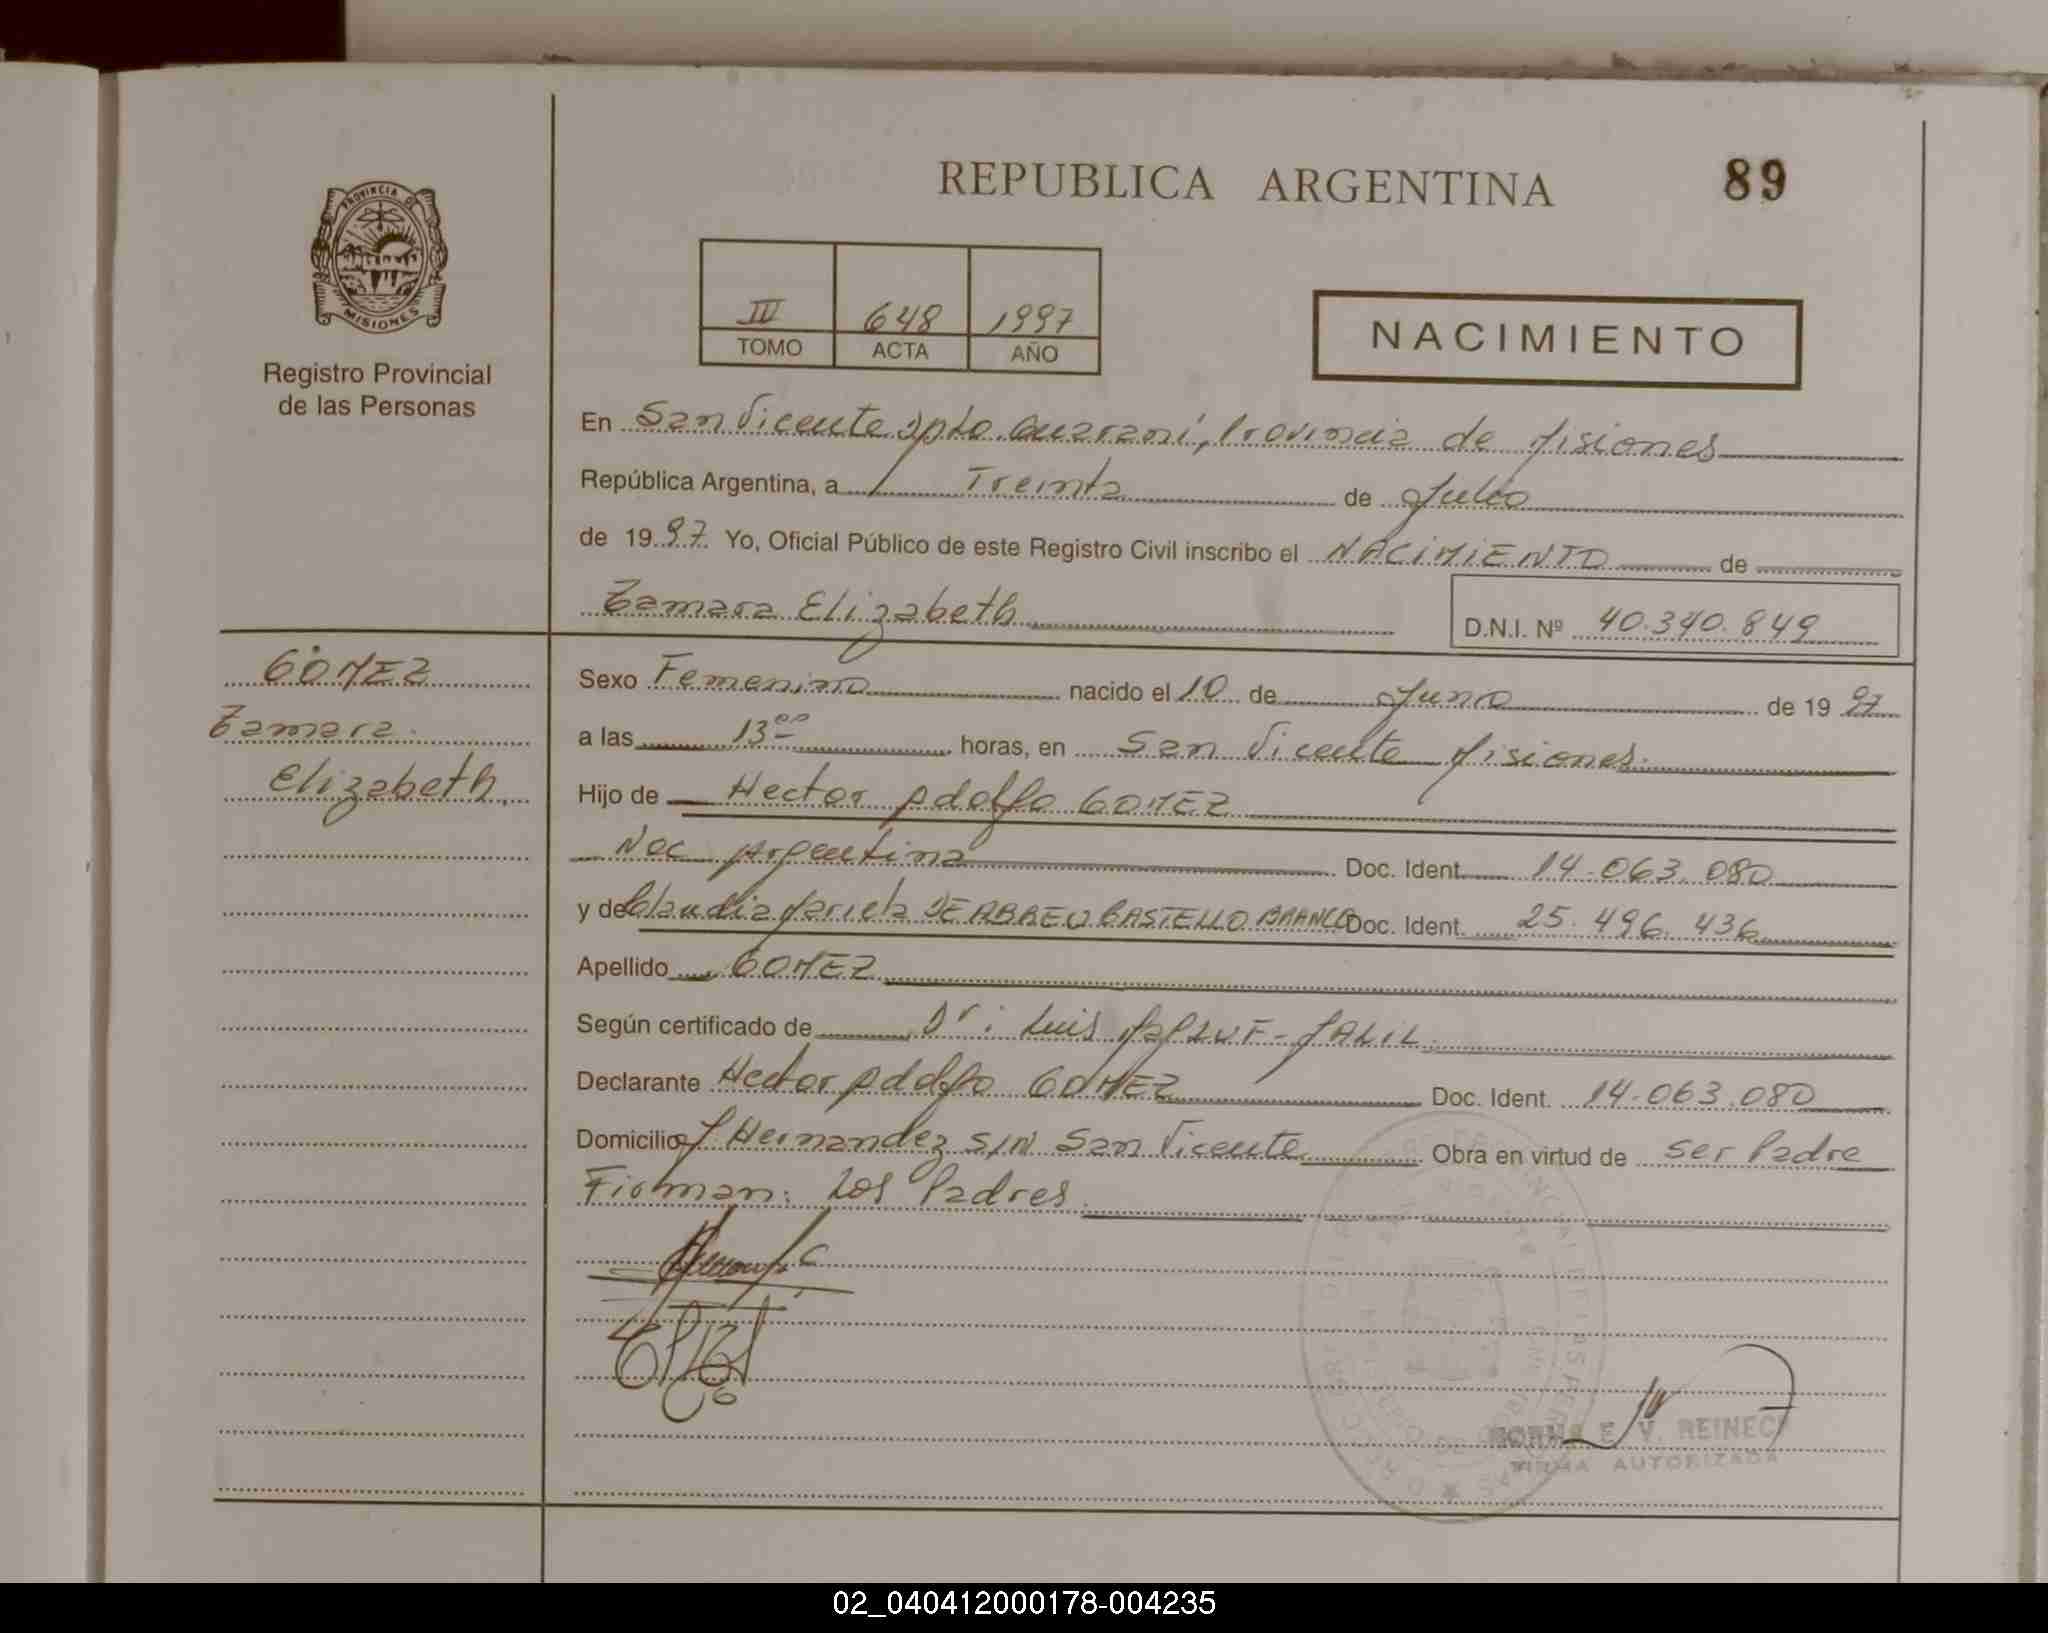 REPUBLICA ARGENTINA
89
PROVINCIA DE
MISIONES
Registro Provincial
de las Personas
IV 648 1997
TOMO ACTA AÑO
NACIMIENTO
En San Vicente Dpto. Guaraní, Provincia de Misiones
República Argentina, a Treinta de Julio
de 1997 Yo, Oficial Público de este Registro Civil inscribo el NACIMIENTO de
Tamara Elizabeth
D.N.I. Nº 40.340.849
GOMEZ
Tamara
Elizabeth
Sexo Femenino nacido el 10 de Junio de 1997
a las 13ºº horas, en San Vicente Misiones.
Hijo de Hector Adolfo GOMEZ
Nac Argentina Doc. Ident. 14.063.080
y de Claudia Mariela DE ABREU CASTELLO BRANCO Doc. Ident. 25.496.436
Apellido GOMEZ
Según certificado de Dr: Luis
Declarante Hector Adolfo GOMEZ Doc. Ident. 14.063.080
Domicilio J Hernandez S/N San Vicente Obra en virtud de ser Padre
Firman: Los Padres.
NORMA E V. REINECK
FIRMA AUTORIZADA
02_040412000178-004235